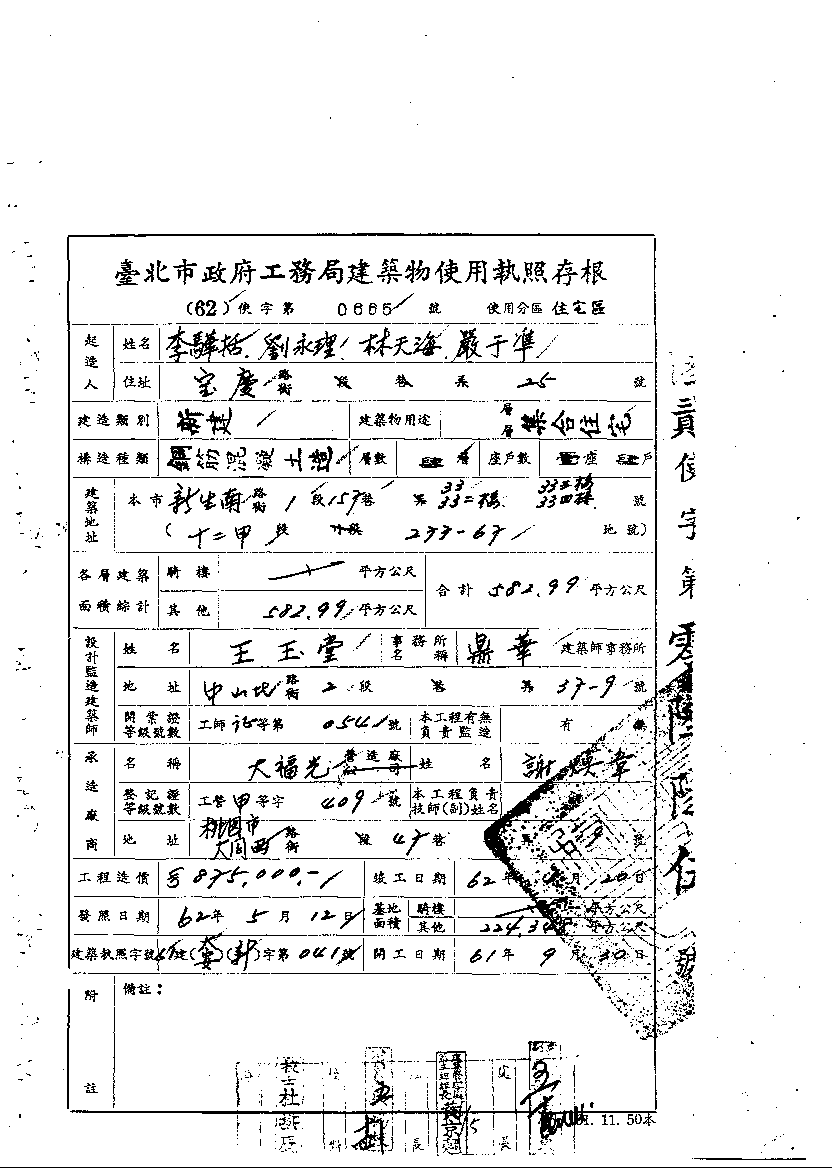 臺北市政府工務局建築物使用執照存根
(62)使字第 0665 號 使用分區 住宅區
起造人 姓名 李驊括、劉永理、林天海、嚴于準
住址 宝慶 路街 段 巷 弄 25 號
建造類別 新建 建築物用途 層層 集合住宅
構造種類 鋼筋混凝土造 層數 肆層 座戶數 壹座 肆戶
建築地址 本市 新生南 路街 1段157巷 弄 33 33二樓 33三樓 33四樓 號
(十二甲 段 小段 277-67 地號)
各層建築面積綜計 騎樓 平方公尺 合計 582.99 平方公尺
其他 582.99 平方公尺
設計監造建築師 姓名 王玉堂 事務所名稱 鼎華 建築師事務所
地址 中山北 路街 2段 巷 弄 37-9 號
開業證等級號數 工師 等第 0541 號 本工程有無負責監造 有 無
承造廠商 名稱 大福光 營造廠公司 姓名 謝煥章
登記證等級號數 工管甲等字 409 號 本工程負責技師(副)姓名
地址 桃園市大同西 路街 段 47巷 弄 號
工程造價 875,000.- 竣工日期 62年 月 20日
發照日期 62年 5月 12日 基地面積 騎樓 平方公尺
其他 224.34 平方公尺
建築執照字號 61建( )( )字第 041 號 開工日期 61年 9月 30日
附註 備註：
使字第零 號
11. 50本